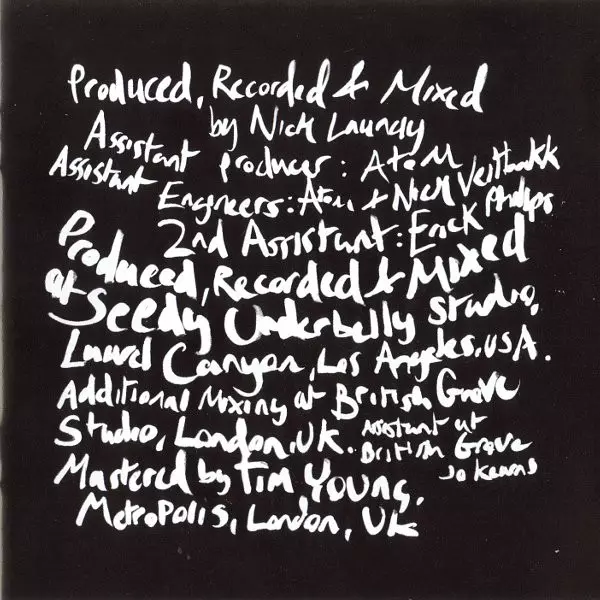 Produced, Recorded & Mixed
by Nick Launay
Assistant Producer: Atom
Assistant Engineers: Atom & Nick
2nd Assistant: Erick Phillips
Produced, Recorded & Mixed
at Seedy Underbelly Studio,
Laurel Canyon, Los Angeles, USA.
Additional Mixing at British Grove
Studio, London, UK. Assistant at
British Grove
Jo Kearns
Mastered by Tim Young,
Metropolis, London, UK